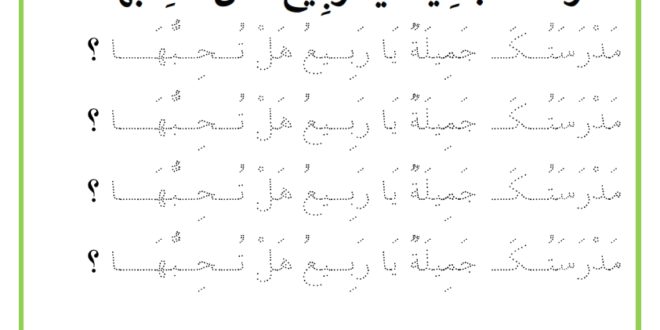 مَدْرَسَتُكَ جَمِيلَةٌ يَا رَبِيعُ هَلْ تُحِبُّهَا ؟
مَدْرَسَتُكَ جَمِيلَةٌ يَا رَبِيعُ هَلْ تُحِبُّهَا ؟
مَدْرَسَتُكَ جَمِيلَةٌ يَا رَبِيعُ هَلْ تُحِبُّهَا ؟
مَدْرَسَتُكَ جَمِيلَةٌ يَا رَبِيعُ هَلْ تُحِبُّهَا ؟